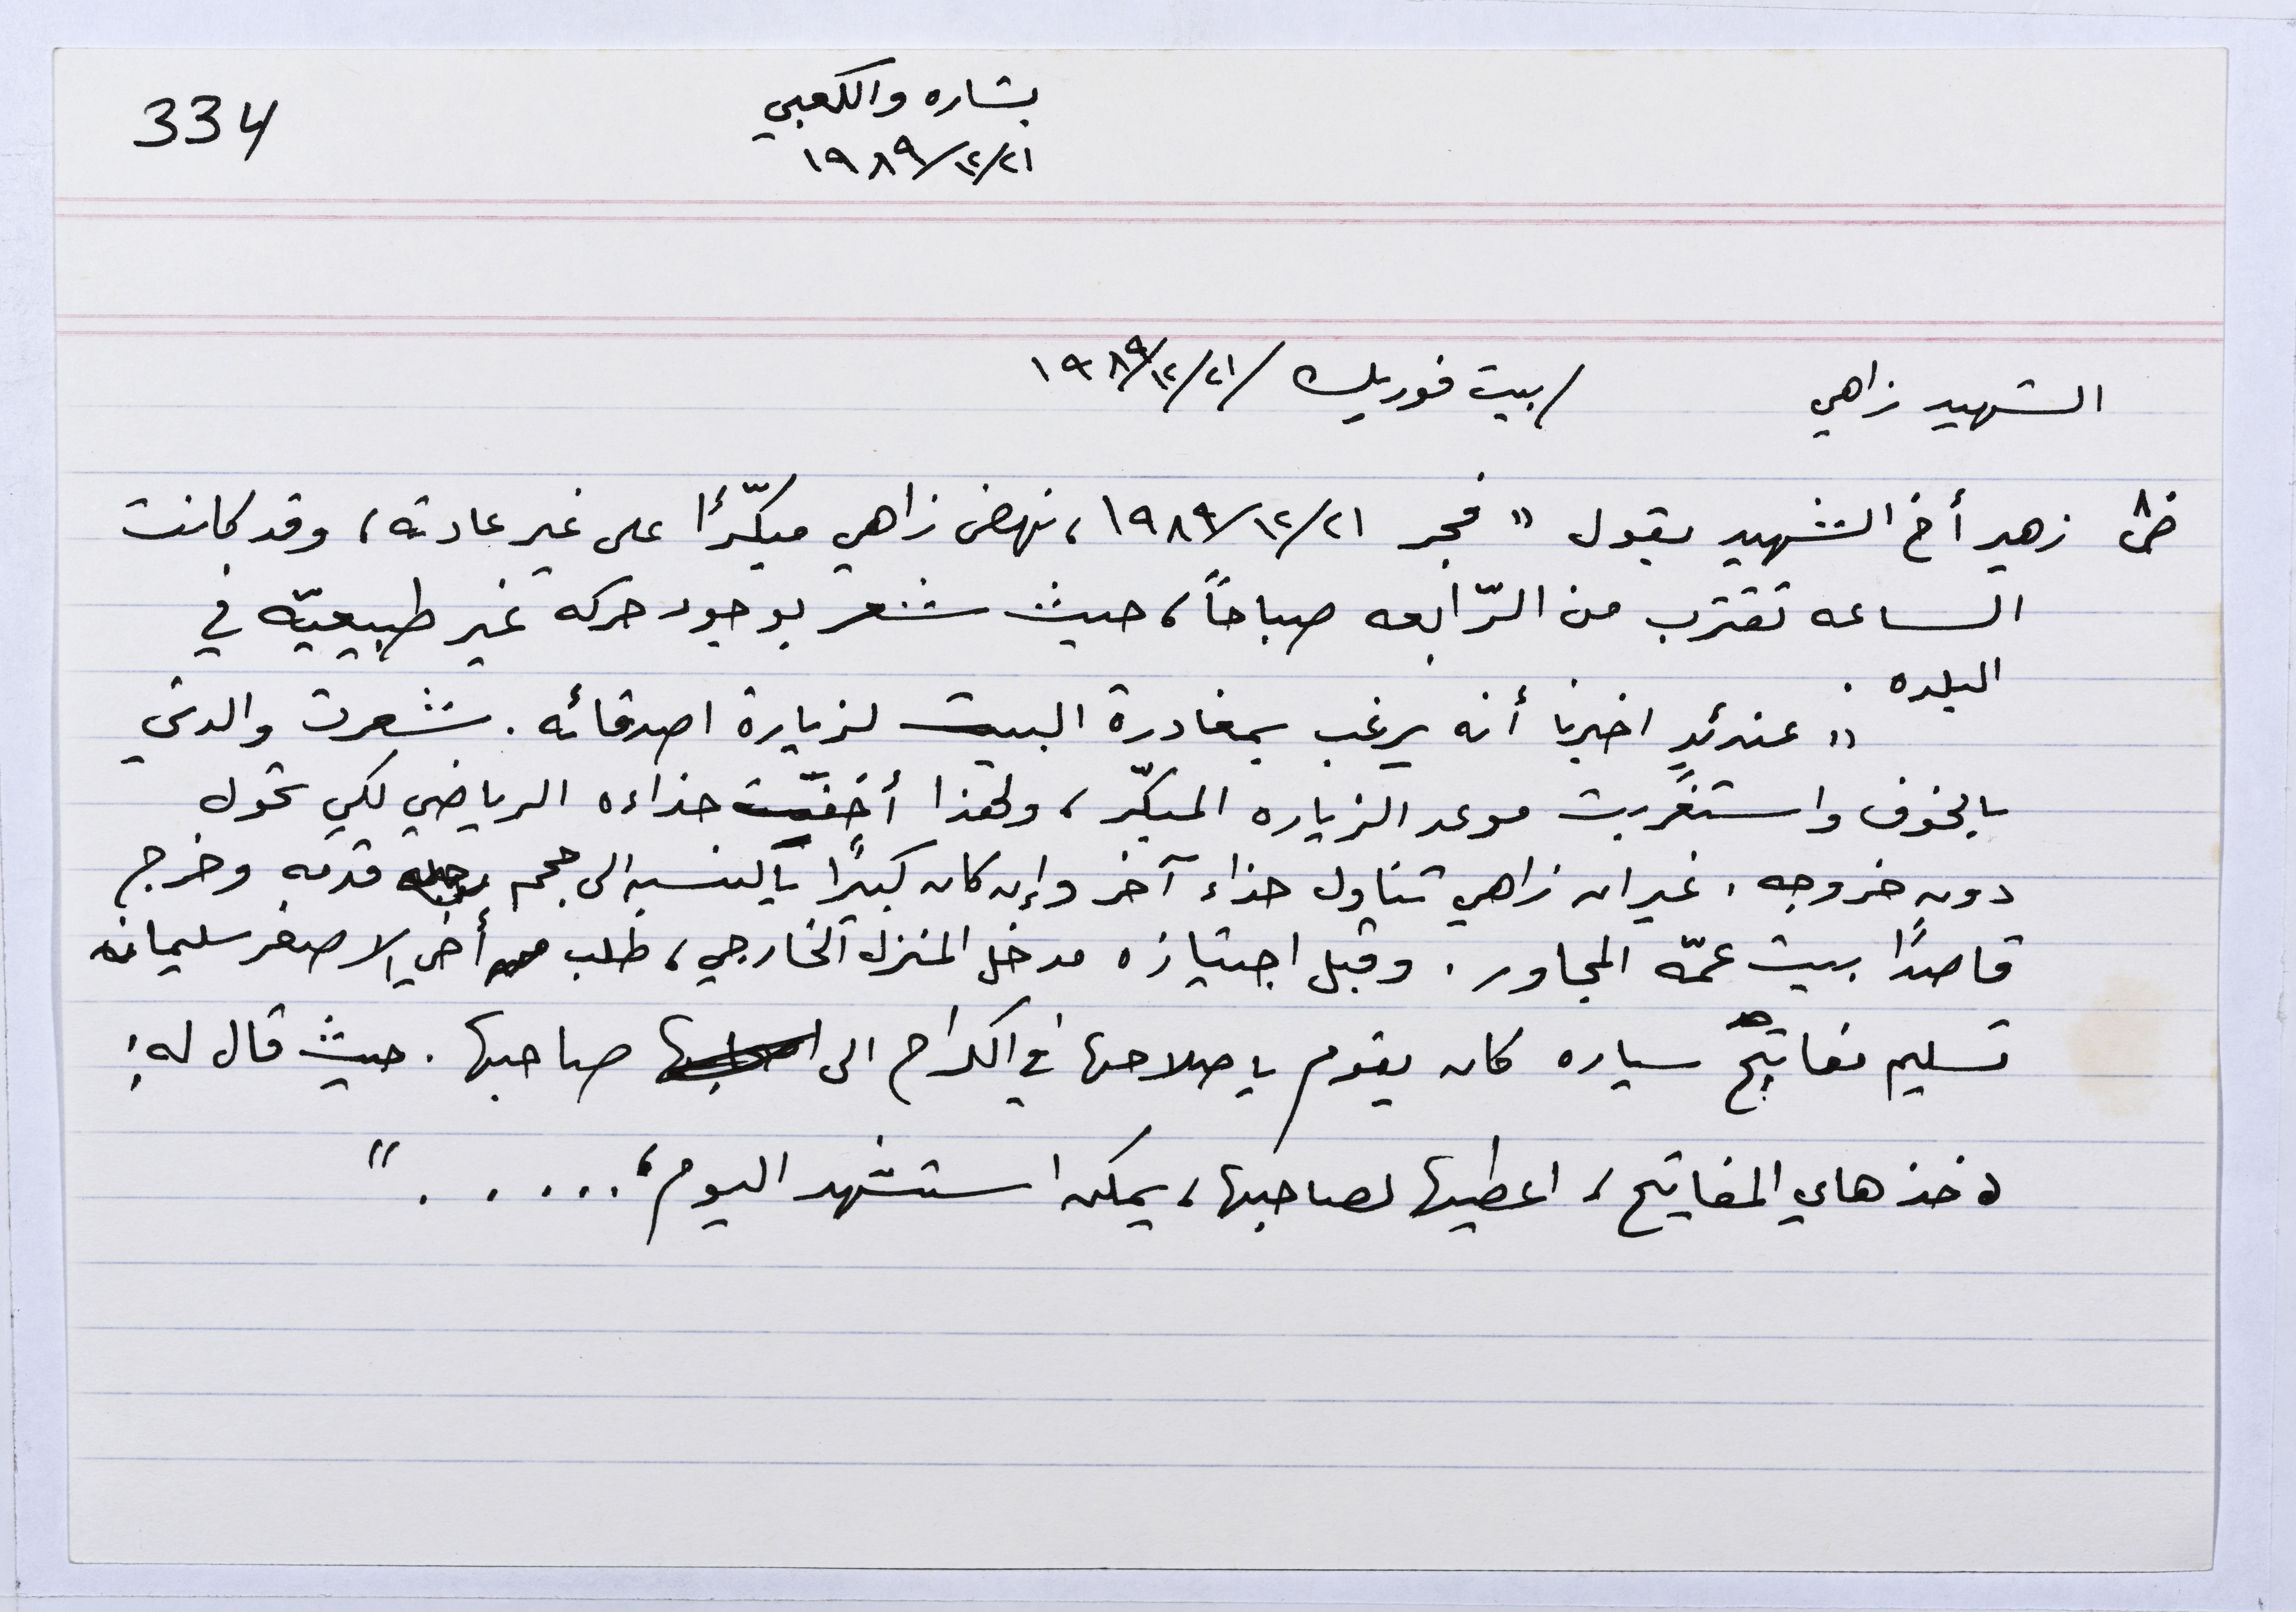 334
بشاره والكعبي
١٩٨٩/١٢/٢١
الشهيد زاهي /بيت فوريك /١٩٨٩/١٢/٢١
زهير أخ الشهيد يقول " فجر ١٩٨٩/١٢/٢١، نهض زاهي مبكّرًا على غير عادته، وقد كانت
الساعه تقترب من الرّابعه صباحاً، حيث شعر بوجود حركه غير طبيعيّه في
البلده .
" عندئدٍ اخبرنا أنه يرغب بمغادرة البيت لزيارة اصدقائه. شعرت والدتي
بالخوف واستغربت موعد الزياره المبكّر، ولهذا أخفيّت حذاءه الرياضي لكي تحول
دون خروجه. غير ان زاهي تناول حذاء آخر وإن كان كبيرًا بالنسبه الى حجم قدمه وخرج
قاصدًا بيت عمّه المجاور. وقبل اجتيازه مدخل المنزل الخارجي، طلب من أخي الاصغر سليمان
تسليم مفاتيح سياره كان يقوم باصلاحها في الكراج الى صاحبها. حيث قال له:
خذ هاي المفاتيح، اعطيها لصاحبها، يمكن استشهد اليوم، ..... "